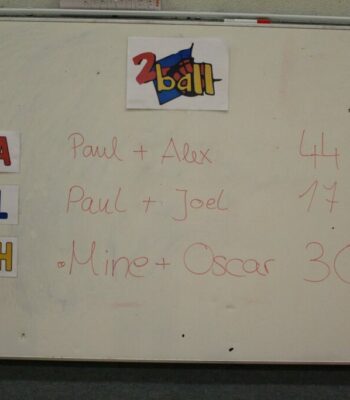 2
ball
A Paul + Alex 44
L Paul + Joel 17
H Mine + Oscar 30